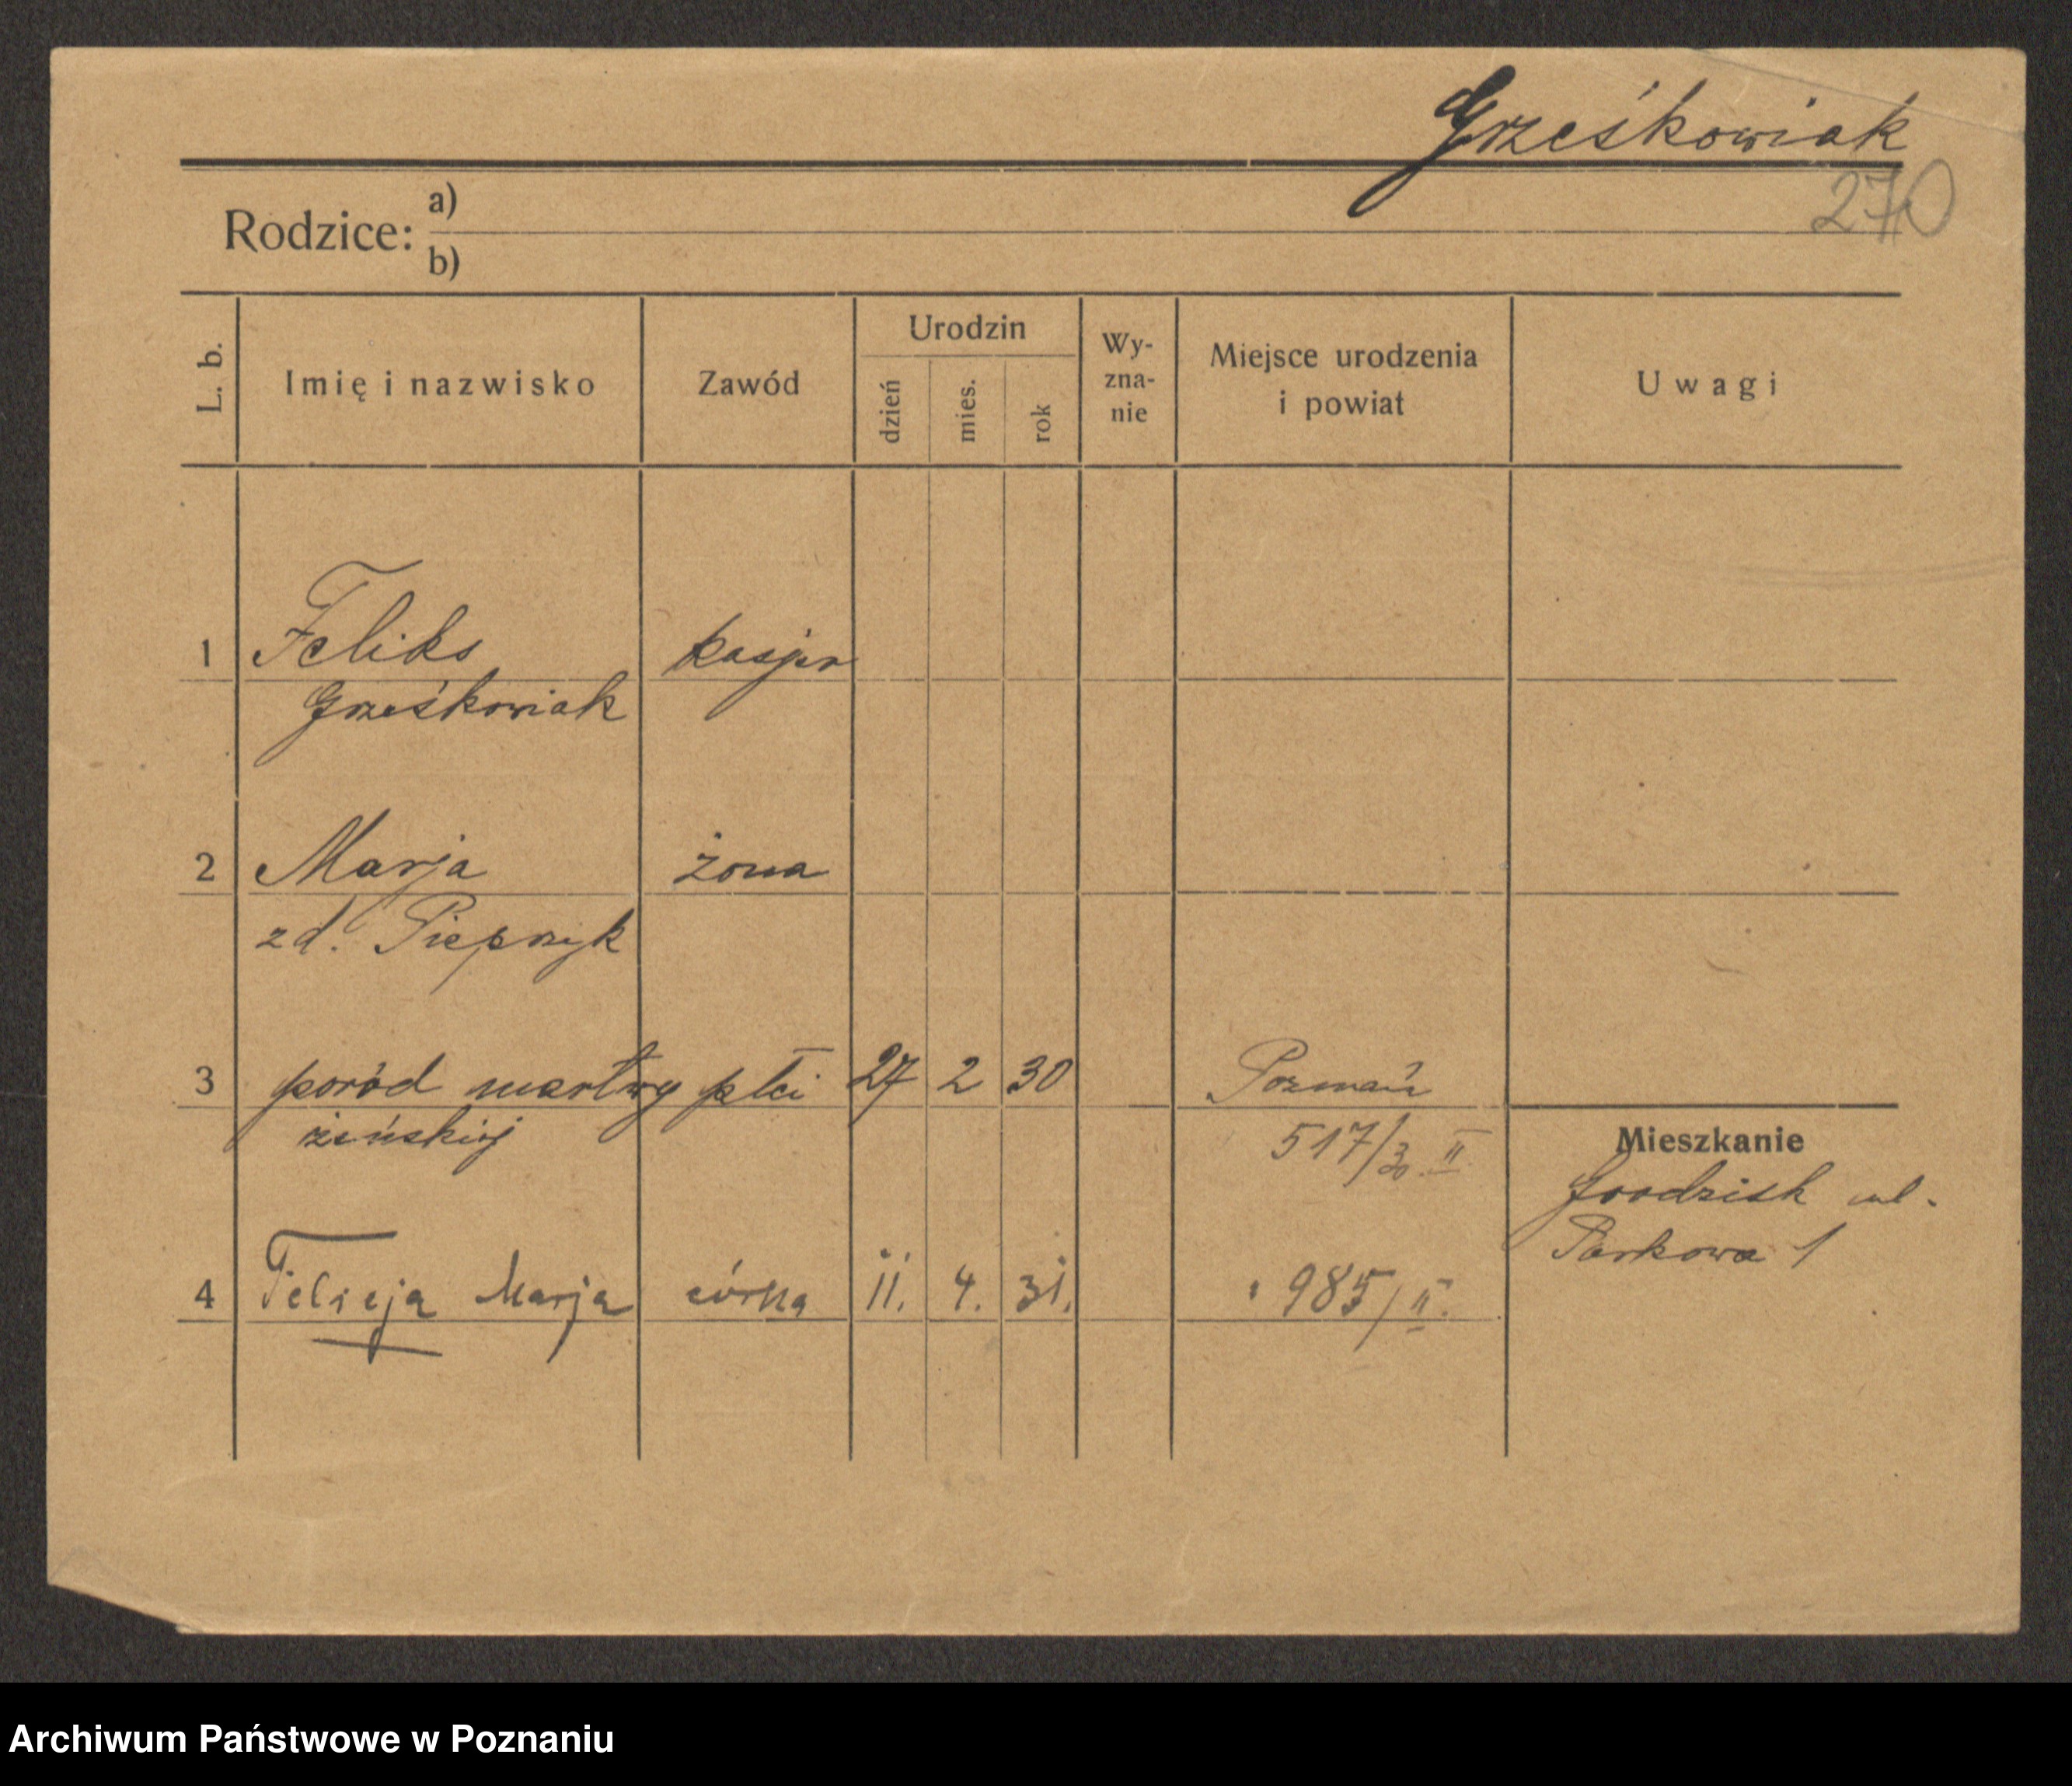 Grześkowiak
270
Rodzice: a)
b)
L. b. Imię i nazwisko Zawód Urodzin dzień mies. rok Wy-zna-nie Miejsce urodzenia i powiat Uwagi
1 Feliks kasjer
Grześkowiak
2 Marja żona
zd. Pieprzyk
3 poród martwy płci 27 2 30 Poznań
żeńskiej 517/30 II
Mieszkanie
Grodzisk ul.
Parkowa 1
4 Felicja Marja córka 11. 4. 31. " 985/II.
Archiwum Państwowe w Poznaniu